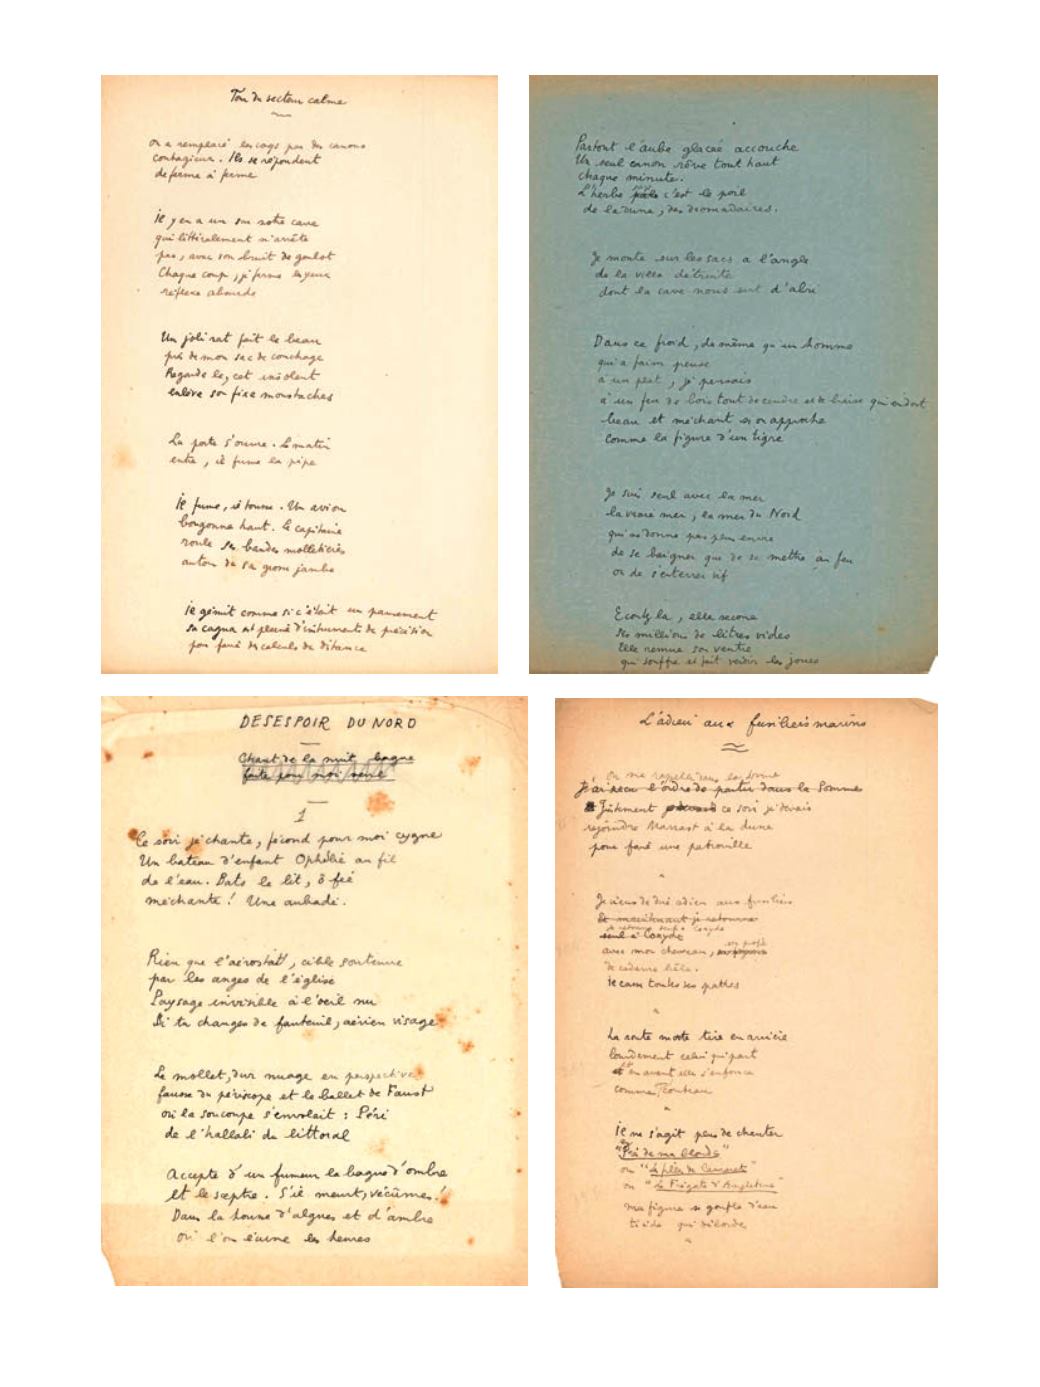 Tour du secteur calme
on a remplacé les coqs par des canons
contagieux. Ils se répondent
de ferme à ferme
Il y en a un sur notre cave
qui littéralement n'arrête
pas, avec son bruit de goulot
Chaque coup, je ferme les yeux
réflexe absurde
Un joli rat fait le beau
près de mon sac de couchage
Regarde le, cet insolent
enlève son fixe moustaches
La porte s'ouvre. Le matin
entre, il fume la pipe
Il fume, il tousse. Un avion
bougonne haut. Le capitaine
roule ses bandes molletières
autour de sa grosse jambe
Il gémit comme si c'était un pansement
sa cagna est pleine d'instruments de précision
pour faire des calculs de distance
Partout l'aube glacée accouche
Un seul canon rêve tout haut
chaque minute.
L'herbe c'est le poil
de la dune, des dromadaires.
Je monte sur les sacs a l'angle
de la villa détruite
dont la cave nous sert d'abri
Dans ce froid, de même qu'un homme
qui a faim pense
à un plat, je pensais
à un feu de bois tout de cendre et de braise qui endort
beau et méchant si on approche
comme la figure d'un tigre
Je suis seul avec la mer
la vraie mer, la mer du Nord
qui ne donne pas plus envie
de se baigner que de se mettre au feu
ou de s'enterrer vif
Ecoutez la, elle secoue
ses millions de litres vides
Elle remue son ventre
qui souffre et fait verdir les joues
DESESPOIR DU NORD
Chant de la nuit bague
faite pour moi seul
1
Ce soir je chante, fécond pour moi cygne
Un bateau d'enfant Ophélie au fil
de l'eau. Bats le lit, ô fée
méchante! Une aubade.
Rien que l'aérostat, cible soutenue
par les anges de l'église
Paysage invisible à l'oeil nu
Si tu changes de fauteuil, aérien visage
Le mollet, dur nuage en perspective
fausse du périscope et le ballet de Faust
où la soucoupe s'envolait : Péri
de l'hallali du littoral
Accepte d'un fumeur la bague d'ombre
et le sceptre. S'il meurt, vécûmes!
Dans la houle d'algues et d'ambre
où l'on écume les heures
L'adieu aux fusiliers marins
on me rappelle dans la Somme
J'ai reçu l'ordre de partir dans la Somme
Justement ce soir je devais
rejoindre Marrast à la dune
pour faire une patrouille
Je viens de dire adieu aux fusiliers
Et maintenant je retourne
je retourne seul à Coxyde
seul à Coxyde
avec mon chevreau,
de cadavre bêle.
Il casse toutes ses pattes
La route morte tire en arrière
lourdement celui qui part
et en avant elle s'enfonce
comme
Il ne s'agit plus de chanter
"Près de ma blonde"
ou "Les filles de Camaret"
ou "La Frégate d'Angleterre"
ma figure se gonfle d'eau
tiède qui déborde